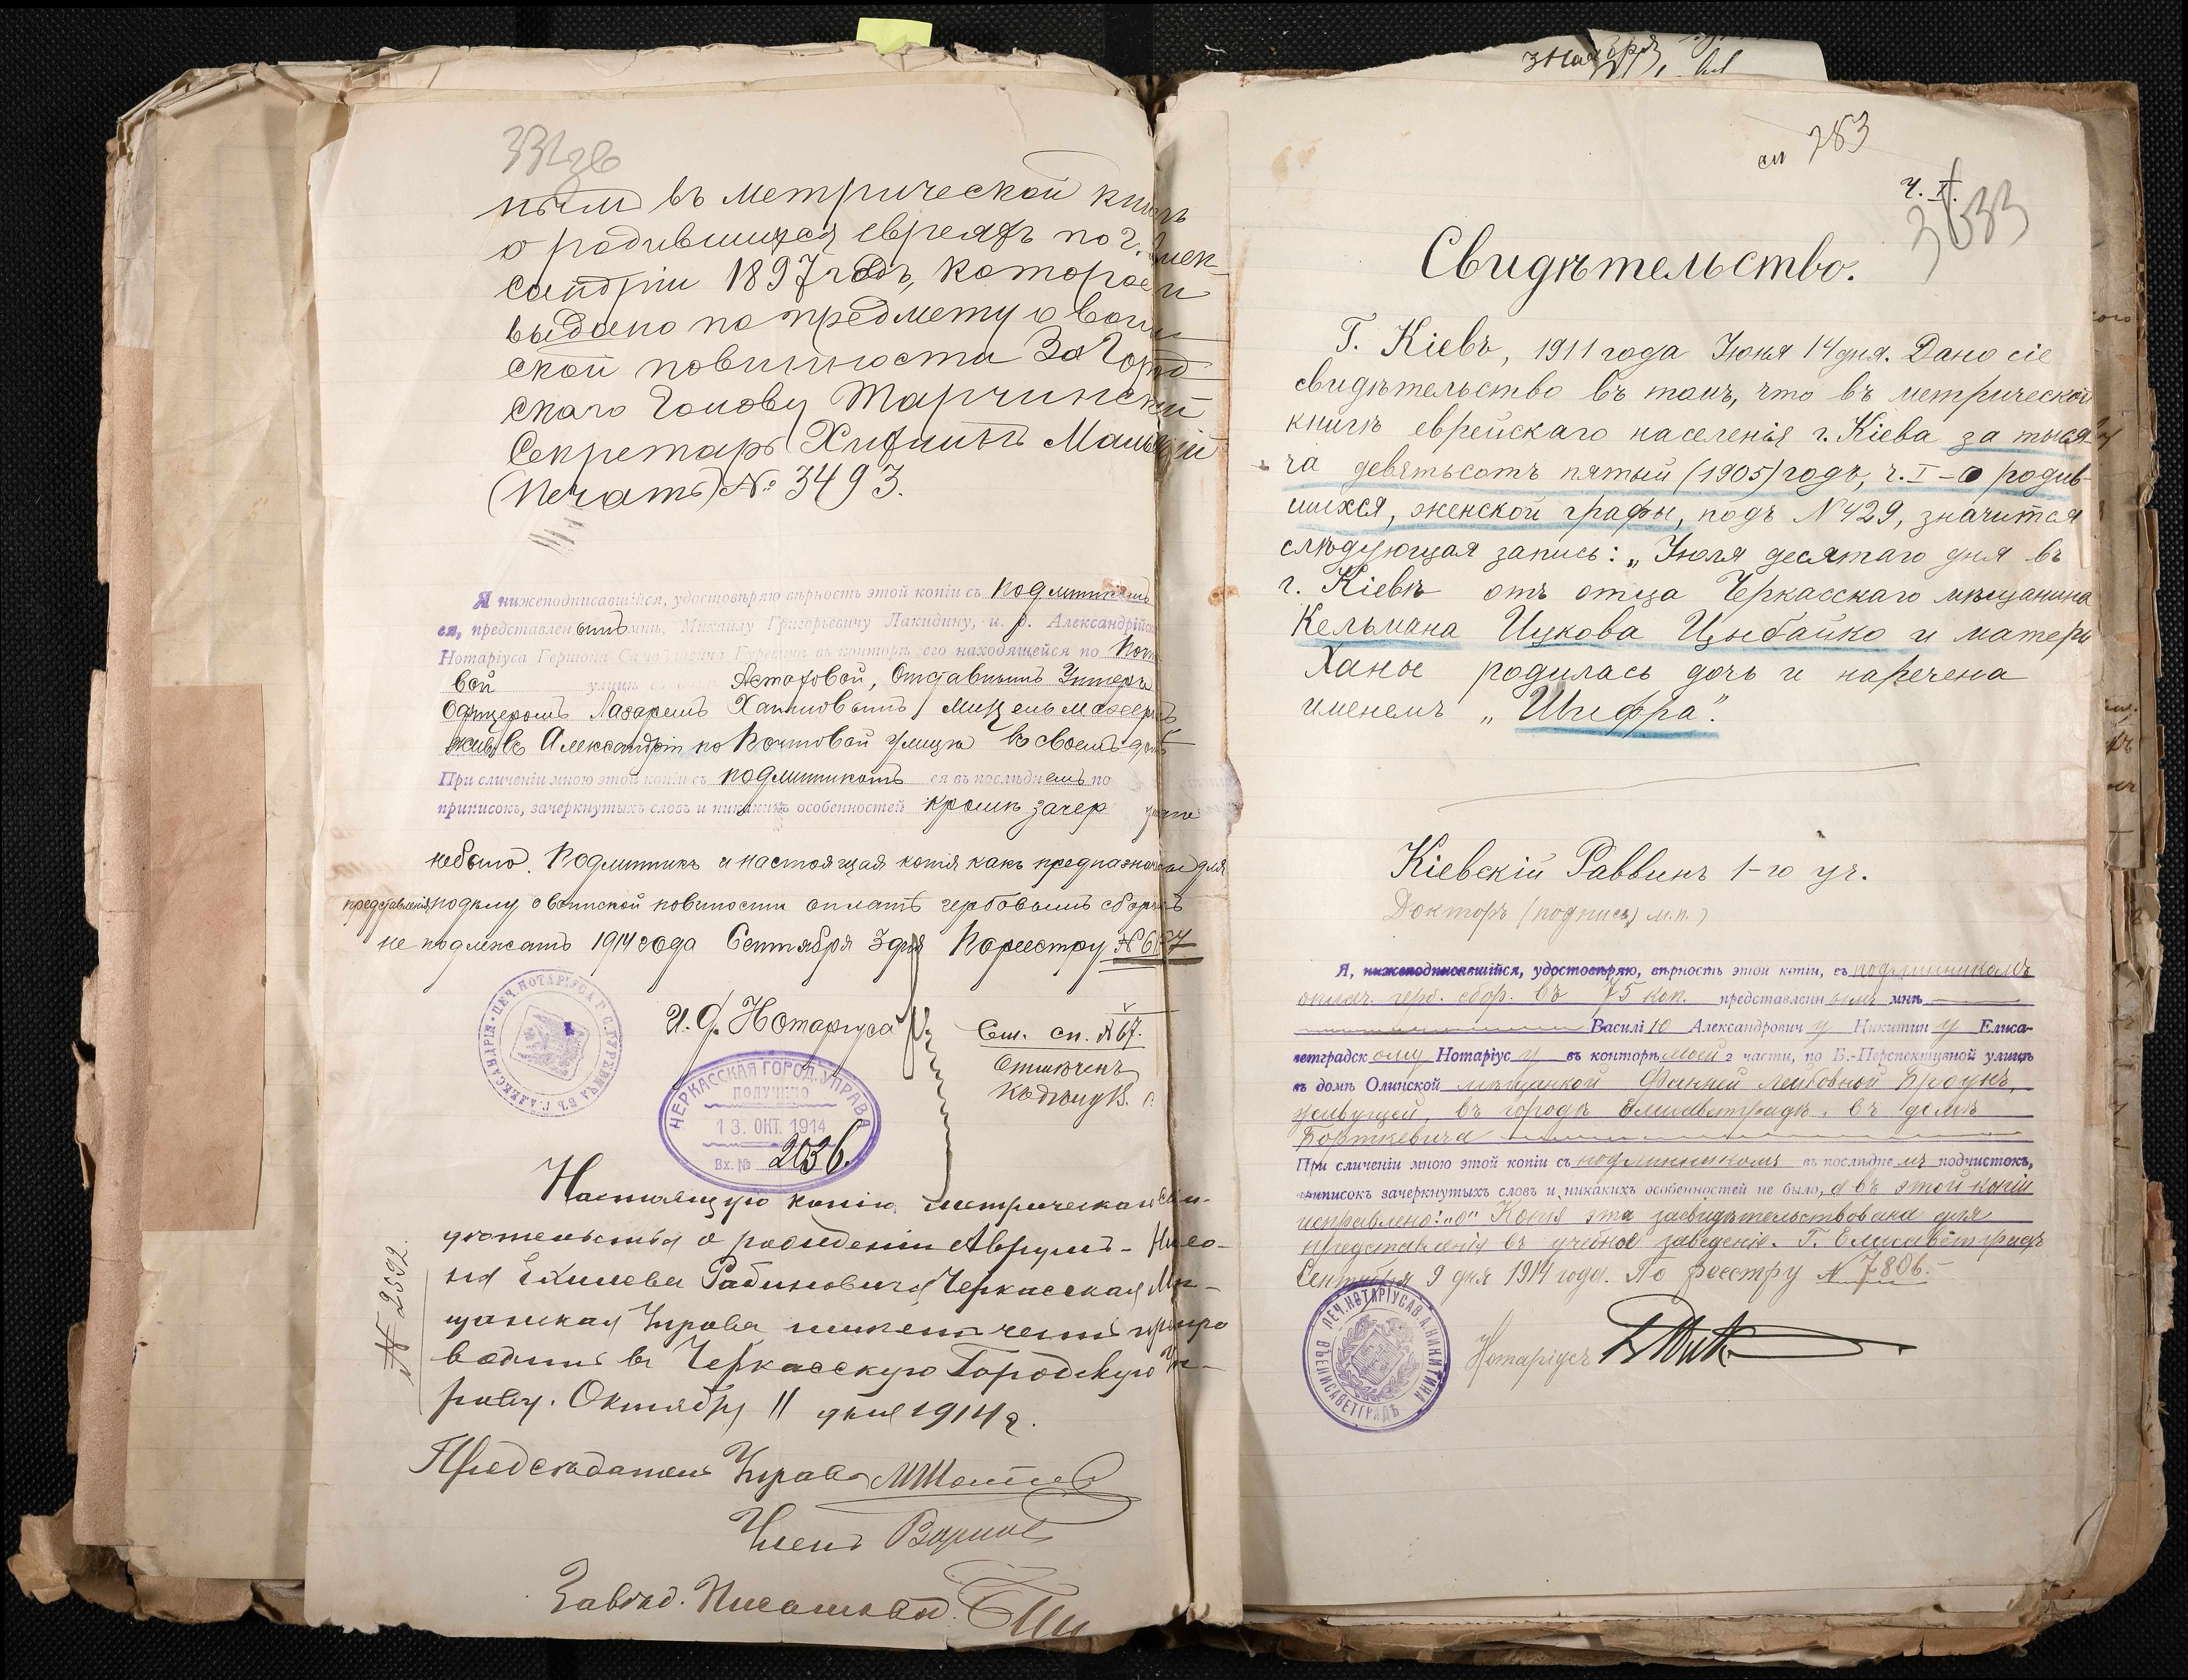 нымъ въ метрической книгѣ
о родившихся евреяхъ по г. Алек-
сандріи 1897 годъ, которое и
выдано по предмету о воин
ской повинности За Город
скаго Голову Тарчинскій
Секретарь
(Печать) № 3493.
Я нижеподписавшійся, удостовѣряю вѣрность этой копіи съ подлинникомъ
ея, представленнымъ мнѣ, Михаилу Григорьевичу Лакидину, и. д. Александрійскаго
Нотаріуса Гершона Гуревича въ конторѣ его находящейся по Почто
вой улицѣ Астафовой, Отставнымъ Унтеръ
Офицеромъ Лазаремъ Хаимовымъ
жив. въ Александріи по Почтовой улицѣ въ своемъ домѣ
При сличеніи мною этой копіи съ подлинникомъ ея въ послѣднемъ по
приписокъ, зачеркнутыхъ словъ и никакихъ особенностей кромѣ зачер
небыло. Подлинникъ и настоящая копія какъ предназначенные для
представленія по дѣлу о воинской повинности оплатѣ гербовымъ сборомъ
не подлежатъ 1914 года Сентября 3 дня По реестру № 6
ПЕЧ. НОТАРІУСА Г. С. ГУРЕВИЧА ВЪ Г. АЛЕКСАНДРІЯ
И. д. Нотаріуса
См. сп. № 67.
Отмѣченъ
ЧЕРКАССКАЯ ГОРОД. УПРАВА
ПОЛУЧЕНО
13. ОКТ. 1914
Вх. № 2036.
Настоящую копію метрическаго сви-
дѣтельства о рожденіи Аврумъ-
на Ехилева Рабиновича Черкасская Мѣ-
щанская Управа препро
водитъ въ Черкасскую Городскую Уп-
раву. Октября 11 дня 1914 г.
Предсѣдатель Управы
Членъ
Завѣд. Письмовод.
283
Ч. I.
Свидѣтельство.
Г. Кіевъ, 1911 года Іюня 14 дня. Дано сіе
свидѣтельство въ томъ, что въ метрической
книгѣ еврейскаго населенія г. Кіева за тыся
ча девятьсотъ пятый (1905) годъ, ч. I – о родив-
шихся, женской графы, подъ № 429, значится
слѣдующая запись: „Іюля десятаго дня въ
г. Кіевѣ отъ отца Черкасскаго мѣщанина
Кельмана Ицкова Цыбайко и матери
Ханы родилась дочь и наречена
именемъ „Шифра".
Кіевскій Раввинъ 1-го уч.
Докторъ (подпись) м.п.)
Я, нижеподписавшійся, удостовѣряю, вѣрность этой копіи, съ подлинникомъ
оплач. герб. сбор. въ 75 коп. представленнымъ мнѣ
Василію Александровичу Никитину Елиса-
ветградскому Нотаріусу въ конторѣ моей 2 части, по Б.-Перспективной улицѣ
въ домѣ Олинской мѣщанкой Фанней Лейбовной Броунъ,
живущей, въ городѣ Елисаветградѣ, въ домѣ
Борткевича
При сличеніи мною этой копіи съ подлинникомъ въ послѣднемъ подчистокъ,
приписокъ зачеркнутыхъ словъ и никакихъ особенностей не было, а въ этой копіи
исправлено: „о" Копія эта засвидѣтельствована для
представленія въ учебное заведеніе. Г. Елисаветградъ
Сентября 9 дня 1914 года. По реестру № 7806.
ПЕЧ. НОТАРІУСА В. А. НИКИТИНА ВЪ ЕЛИСАВЕТГРАДѢ
Нотаріусъ